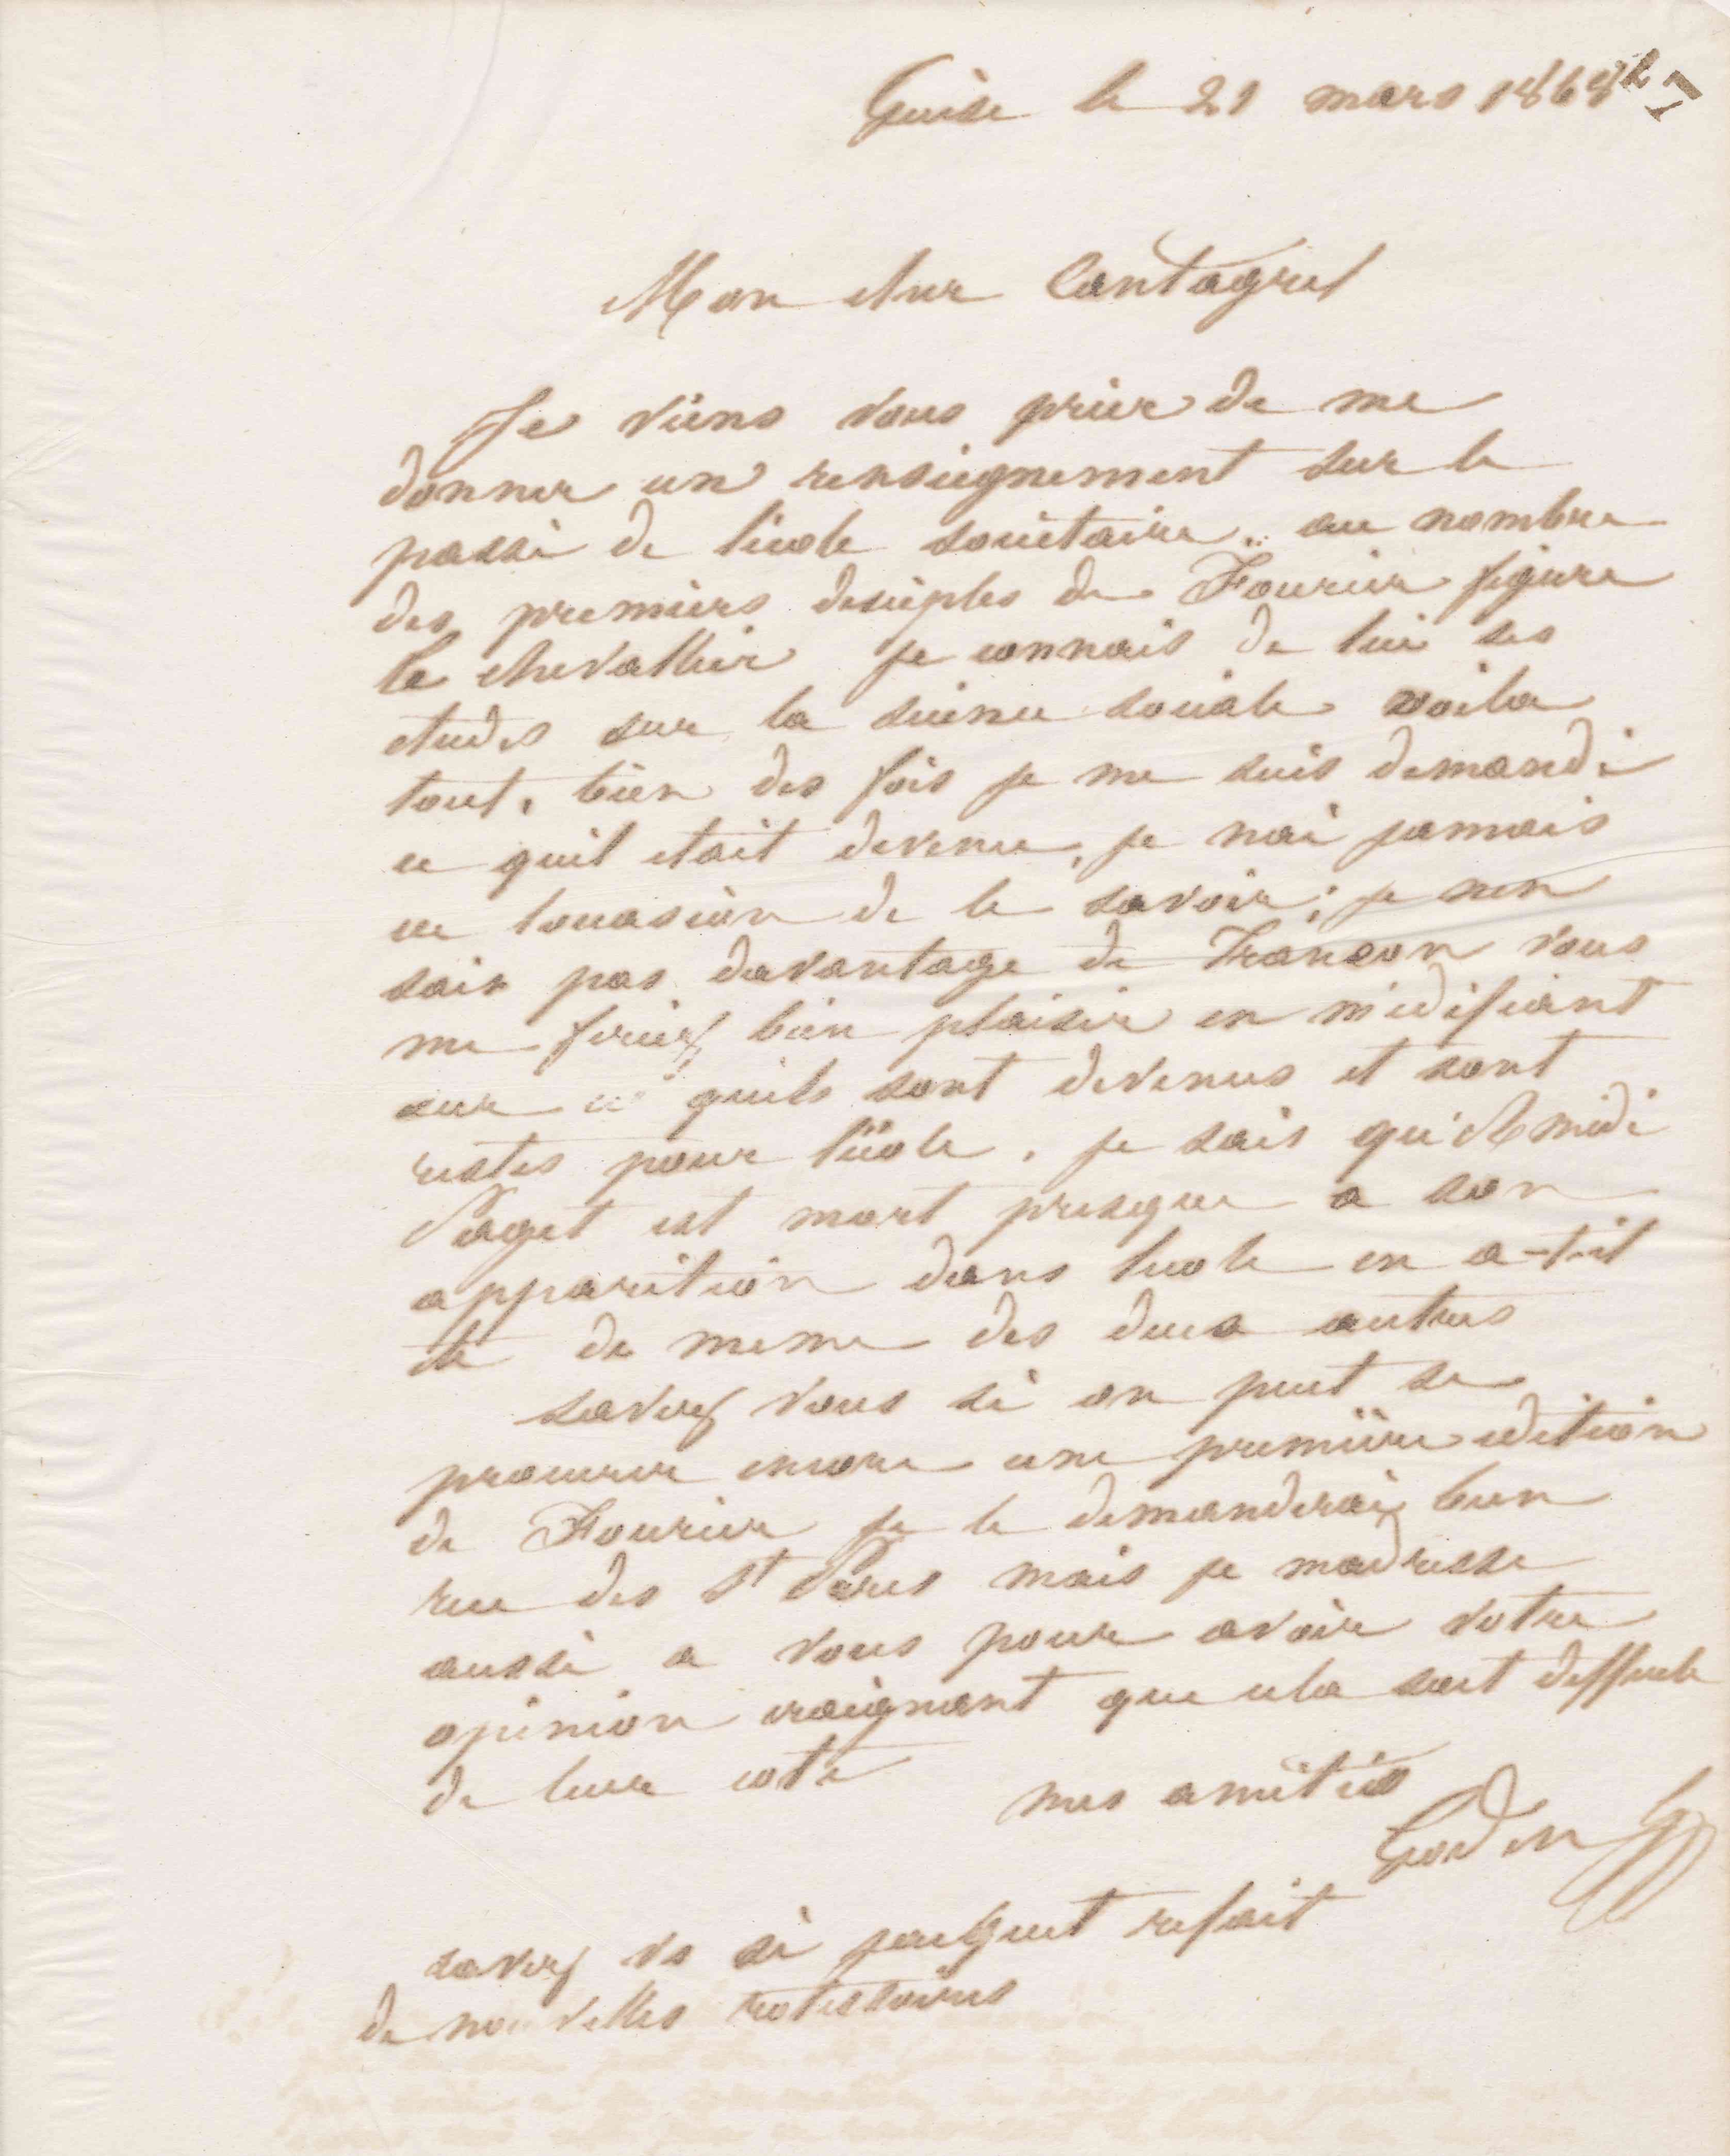 Guise le 21 mars 1868
Mon cher Cantagrel
Je viens vous prier de me
donner un renseignement sur le
passé de l'école sociétaire. au nombre
des premiers desciples de Fourier figure
le chevallier je connais de lui ses
etudes sur la science sociale voila
tout, bien des fois je me suis demandé
ce quil etait devenu, je nai jamais
eu loccasion de le savoir; je nen
sais pas davantage de Trançon vous
me feriez bien plaisir en médifiant
sur ce quils sont devenus et sont
restes pour l'école. je sais qu'Amédé
Paget est mort presque a son
apparition dans lecole en a-t-il
ete de meme des deux autres
savez vous si on peut se
procurer encore une première edition
de Fourier je le demanderai bien
rue des St Peres mais je madresse
aussi a vous pour avoir votre
opinion craignant que cela soit difficile
de leur coté
mes amitiés
Godin
savez vs si refait
de nouvelles rotissoires